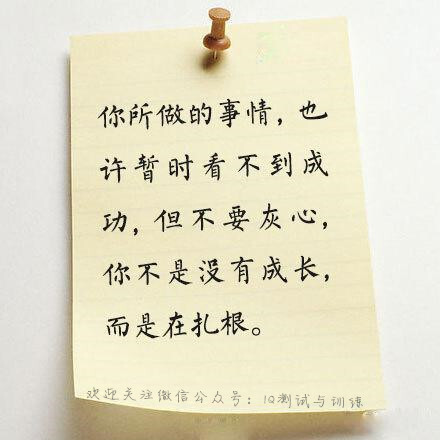 你所做的事情，也
许暂时看不到成
功，但不要灰心，
你不是没有成长，
而是在扎根。
欢迎关注微信公众号：IQ测试与训练